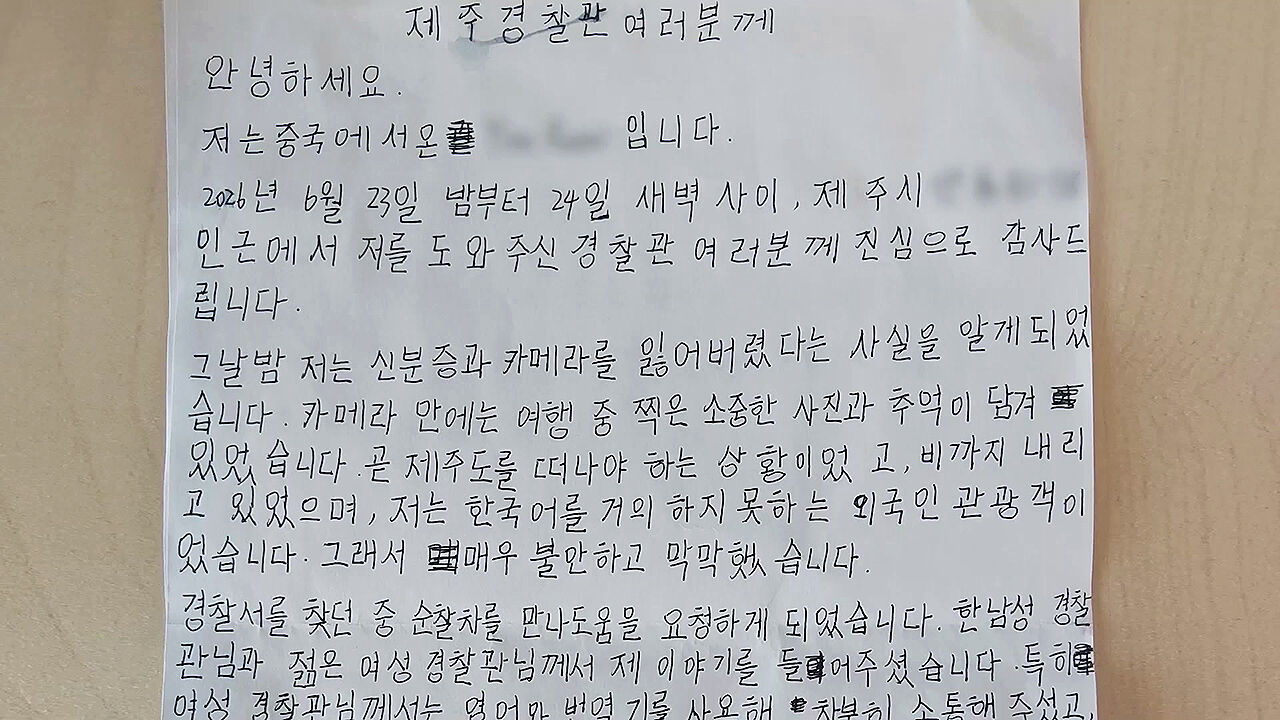 제주경찰관여러분께
안녕하세요.
저는중국에서온 입니다.
2026년 6월 23일 밤부터 24일 새벽 사이, 제주시
인근에서 저를 도와주신 경찰관 여러분께 진심으로 감사드
립니다.
그날밤 저는 신분증과 카메라를 잃어버렸다는 사실을 알게되었
습니다. 카메라 안에는 여행 중 찍은 소중한 사진과 추억이 담겨
있었습니다. 곧 제주도를 떠나야 하는 상황이었고, 비까지 내리
고 있었으며, 저는 한국어를 거의 하지못하는 외국인 관광객이
었습니다. 그래서 매우 불안하고 막막했습니다.
경찰서를 찾던 중 순찰차를 만나도움을 요청하게 되었습니다. 한남성 경찰
관님과 젊은 여성 경찰관님께서 제 이야기를 들어주셨습니다. 특히
여성 경찰관님께서는 영어와 번역기를 사용해 차분히 소통해 주셨고,